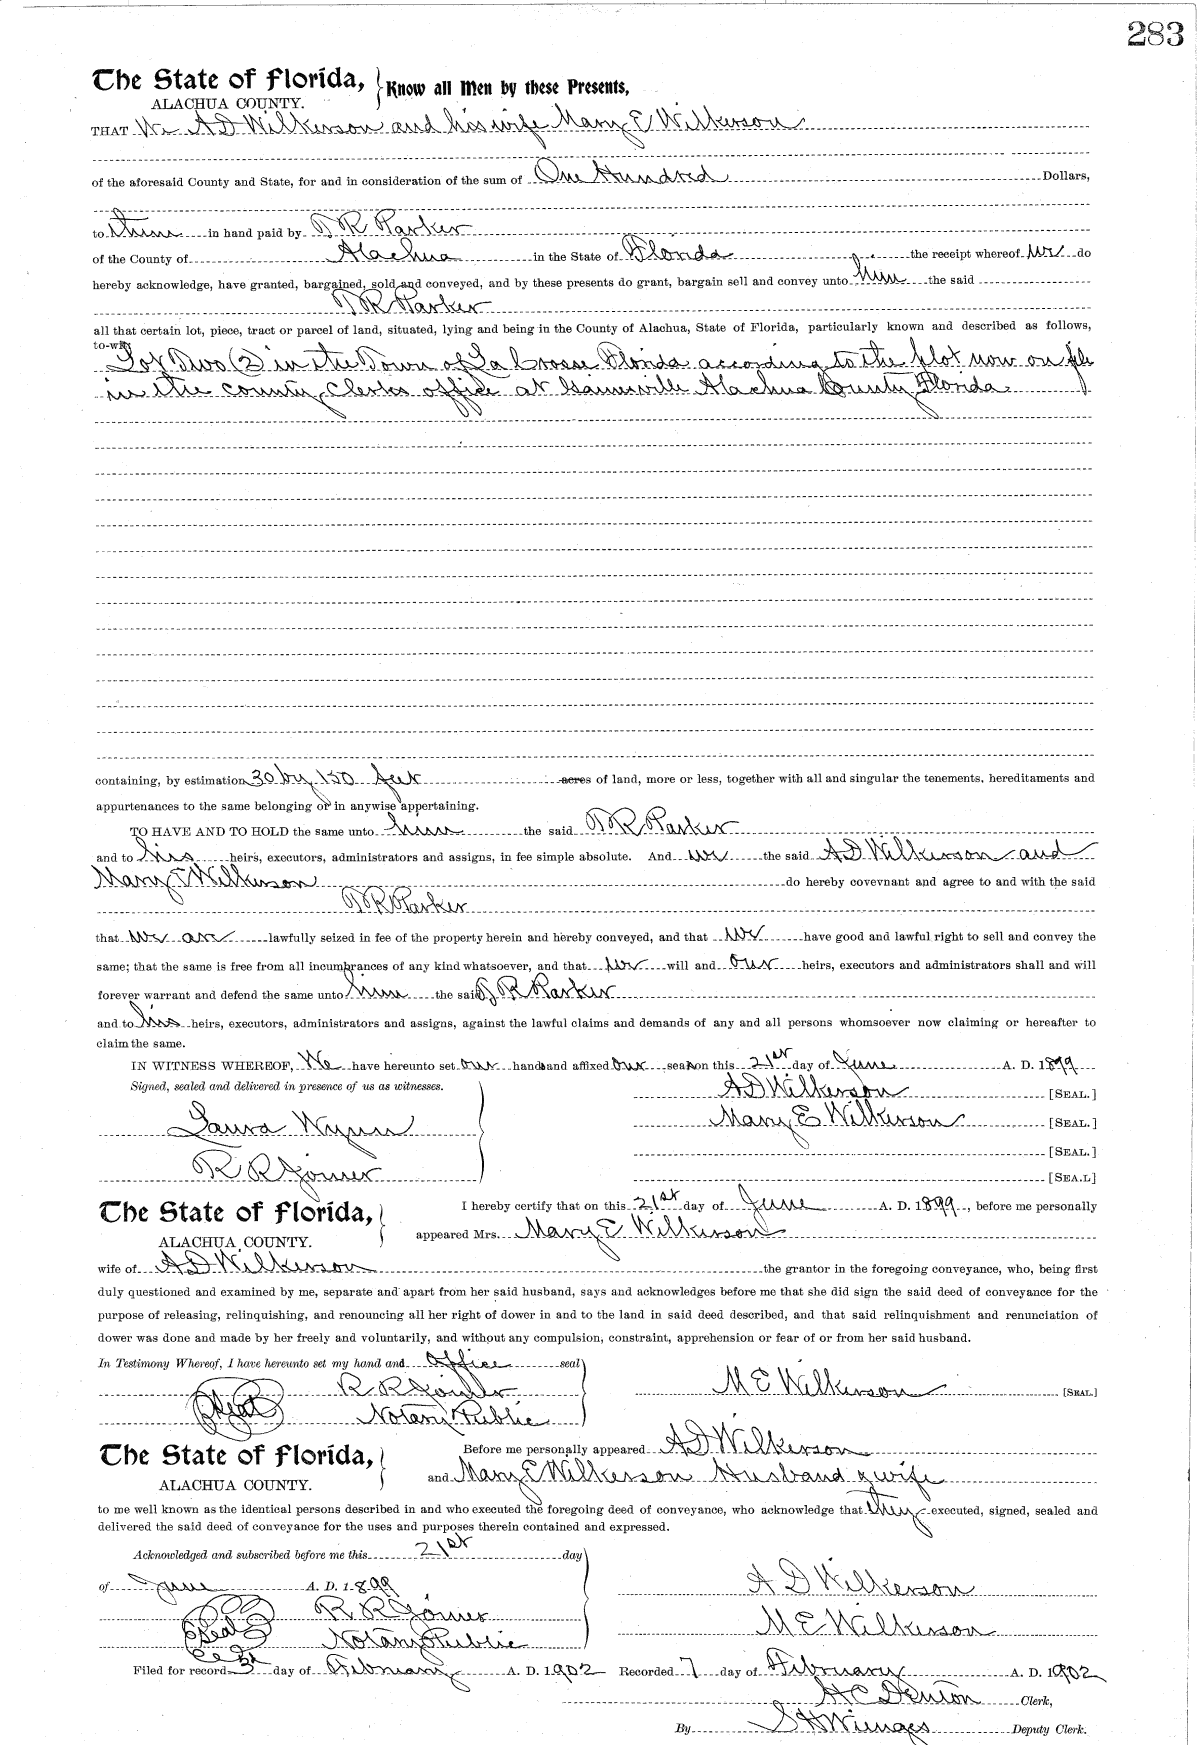 283
The State of Florida, Know all Men by these Presents,
ALACHUA COUNTY.
THAT We A D Wilkerson and his wife Mary E Wilkerson
of the aforesaid County and State, for and in consideration of the sum of One Hundred Dollars,
to them in hand paid by T R Parker
of the County of Alachua in the State of Florida the receipt whereof we do
hereby acknowledge, have granted, bargained, sold and conveyed, and by these presents do grant, bargain sell and convey unto him the said
T R Parker
all that certain lot, piece, tract or parcel of land, situated, lying and being in the County of Alachua, State of Florida, particularly known and described as follows,
to-wit
Lot Two (2) in the Town of La Crosse Florida according to the plot now on file
in the county Clerks office at Gainesville Alachua County Florida
containing, by estimation 30 by 150 feet acres of land, more or less, together with all and singular the tenements, hereditaments and
appurtenances to the same belonging or in anywise appertaining.
TO HAVE AND TO HOLD the same unto him the said T R Parker
and to his heirs, executors, administrators and assigns, in fee simple absolute. And we the said A D Wilkerson and
Mary E Wilkerson do hereby covevnant and agree to and with the said
T R Parker
that we are lawfully seized in fee of the property herein and hereby conveyed, and that we have good and lawful right to sell and convey the
same; that the same is free from all incumbrances of any kind whatsoever, and that we will and our heirs, executors and administrators shall and will
forever warrant and defend the same unto him the said T R Parker
and to his heirs, executors, administrators and assigns, against the lawful claims and demands of any and all persons whomsoever now claiming or hereafter to
claim the same.
IN WITNESS WHEREOF, We have hereunto set our hands and affixed our seal on this 21st day of June A. D. 1899
Signed, sealed and delivered in presence of us as witnesses. A D Wilkerson [SEAL.]
Laura Wynn Mary E Wilkerson [SEAL.]
[SEAL.]
R R Joiner [SEA.L]
The State of Florida, I hereby certify that on this 21st day of June A. D. 1899, before me personally
ALACHUA COUNTY. appeared Mrs. Mary E Wilkerson
wife of A D Wilkerson the grantor in the foregoing conveyance, who, being first
duly questioned and examined by me, separate and apart from her said husband, says and acknowledges before me that she did sign the said deed of conveyance for the
purpose of releasing, relinquishing, and renouncing all her right of dower in and to the land in said deed described, and that said relinquishment and renunciation of
dower was done and made by her freely and voluntarily, and without any compulsion, constraint, apprehension or fear of or from her said husband.
In Testimony Whereof, I have hereunto set my hand and office seal
R R Joiner M E Wilkerson [SEAL.]
Seal Notary Public
The State of Florida, Before me personally appeared A D Wilkerson
ALACHUA COUNTY. and Mary E Wilkerson Husband & wife
to me well known as the identical persons described in and who executed the foregoing deed of conveyance, who acknowledge that they executed, signed, sealed and
delivered the said deed of conveyance for the uses and purposes therein contained and expressed.
Acknowledged and subscribed before me this 21st day
of June A. D. 1899 A D Wilkerson
R R Joiner
Seal Notary Public M E Wilkerson
Filed for record 3rd day of February A. D. 1902 Recorded 7 day of February A. D. 1902
H C Denton Clerk,
By S H Wienges Deputy Clerk.